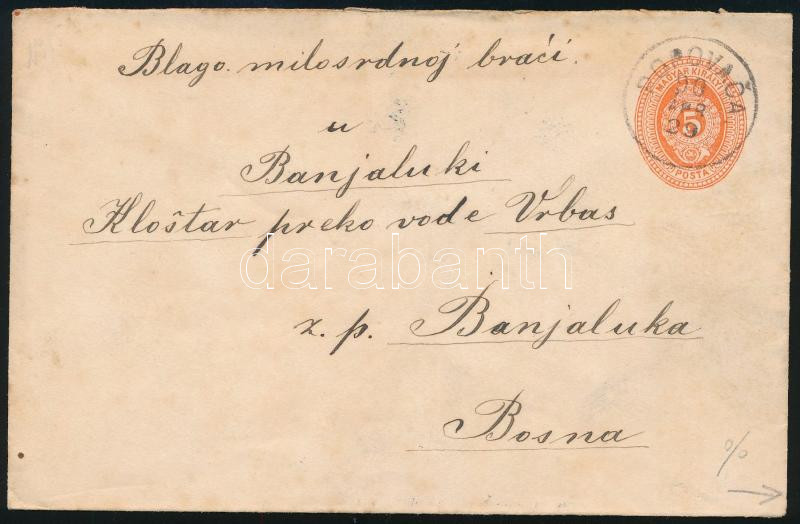 Blago. milosrdnoj braći.
u
Banjaluki
Kloštar preko vode Vrbas
z. p. Banjaluka
Bosna
MAGYAR KIRÁLYI
5
POSTA
darabanth
%